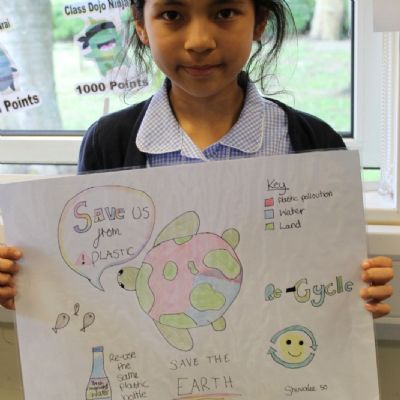 Class Dojo Ninja
Points
1000 Points
SAVE US
from
! PLASTIC
Key
Plastic polloution
Water
Land
Re-Cycle
Re-use
the
same
plastic
bottle
Water
SAVE THE
EARTH